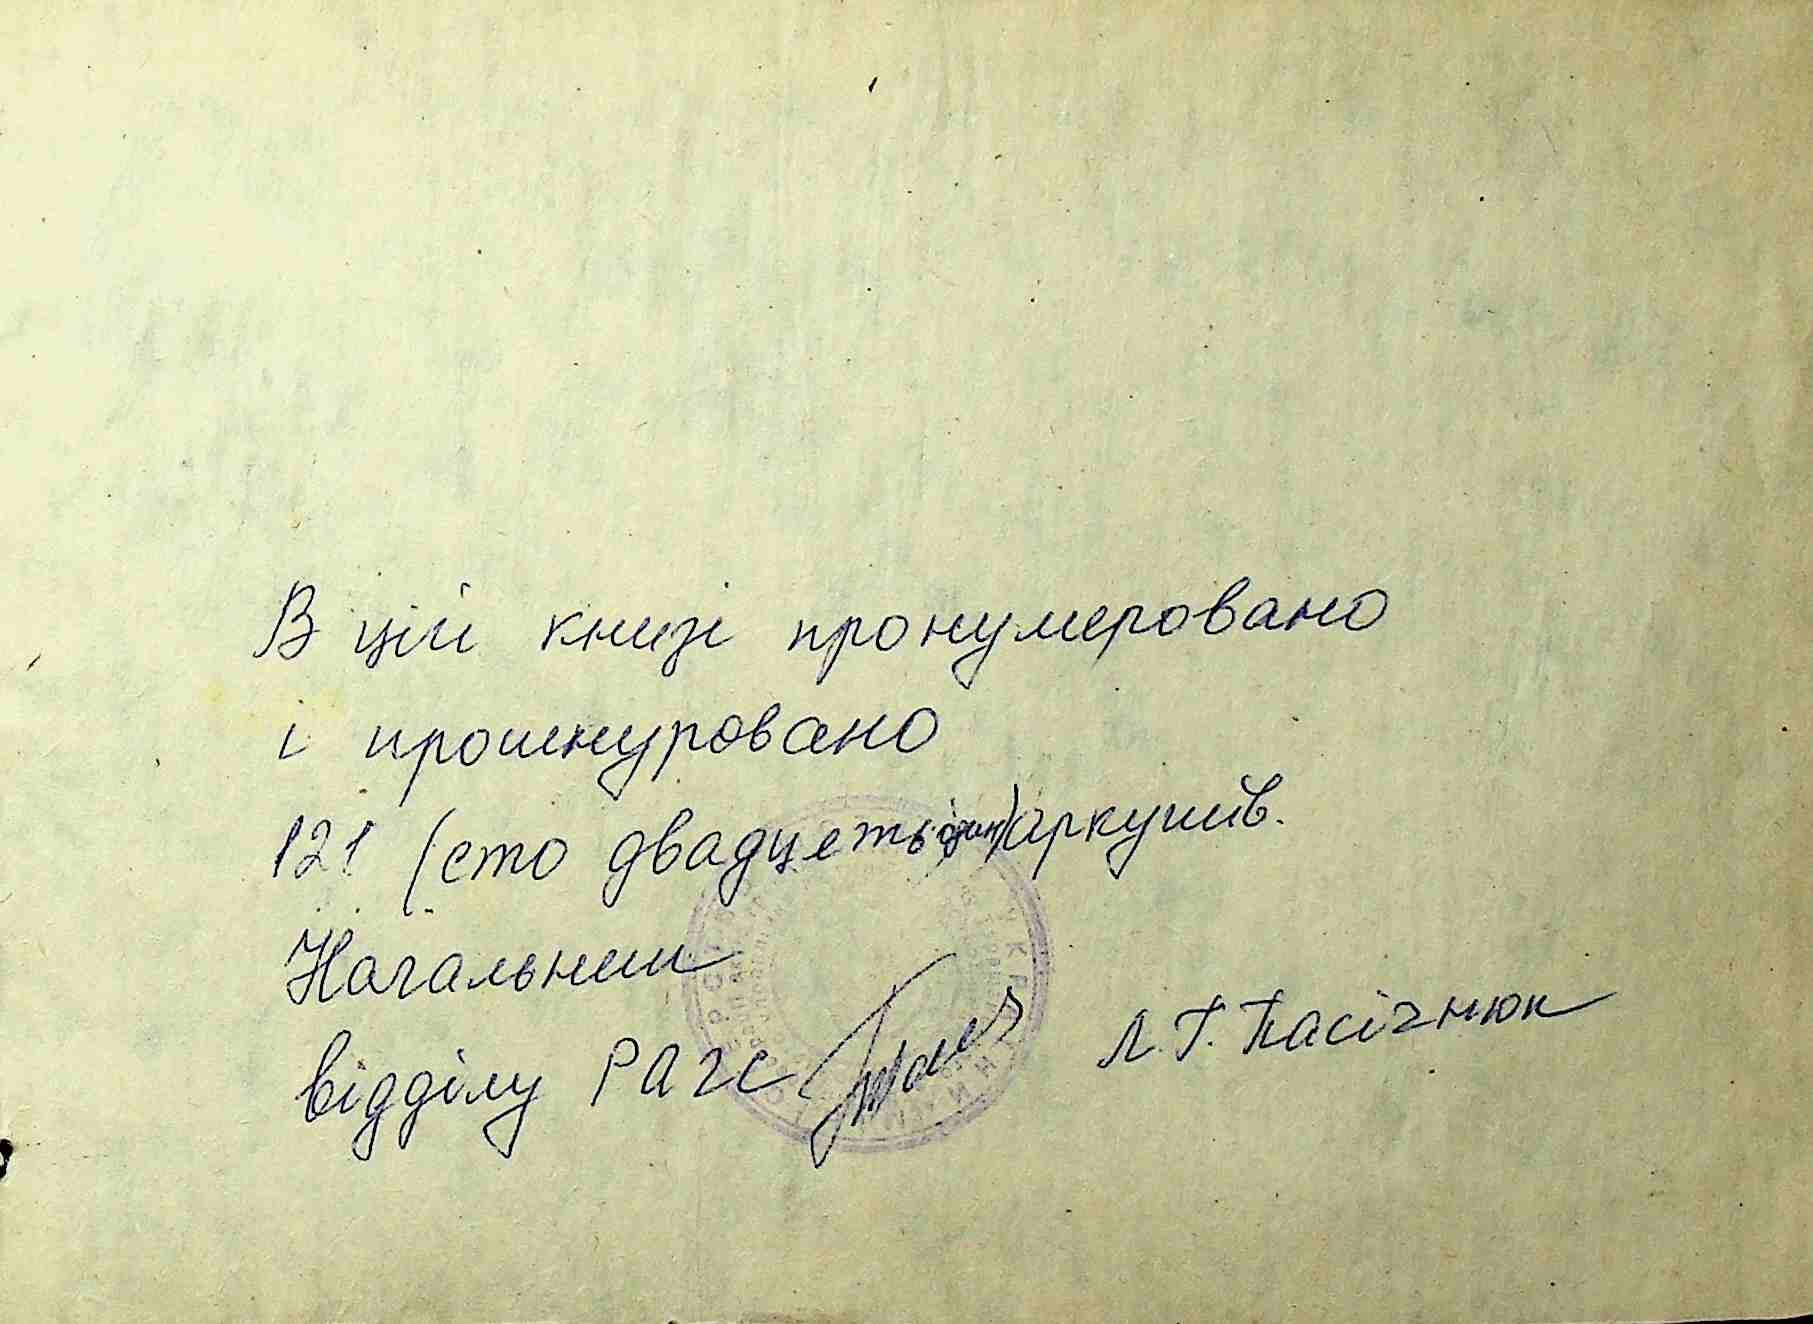 В цій книзі пронумеровано
і прошнуровано
121 (сто двадцеть один) аркушів.
Начальник
відділу РАГС Л. Г. Пасічнюк